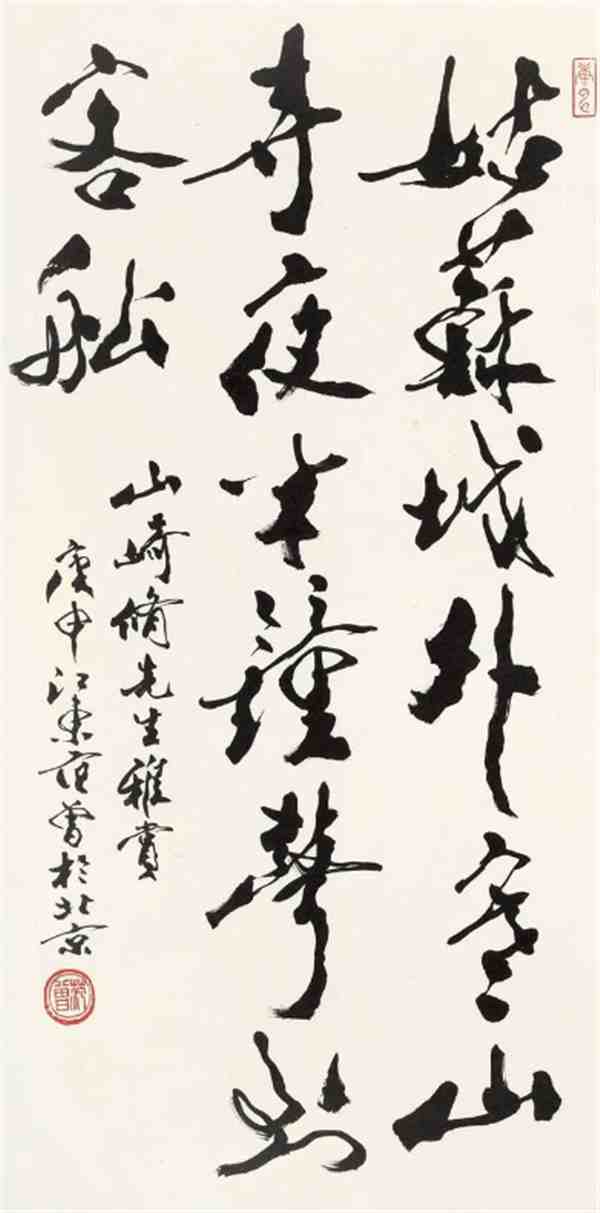 姑蘇城外寒山
寺夜半鐘聲到
客船
山崎脩先生雅賞
庚申江東范曾於北京
范曾